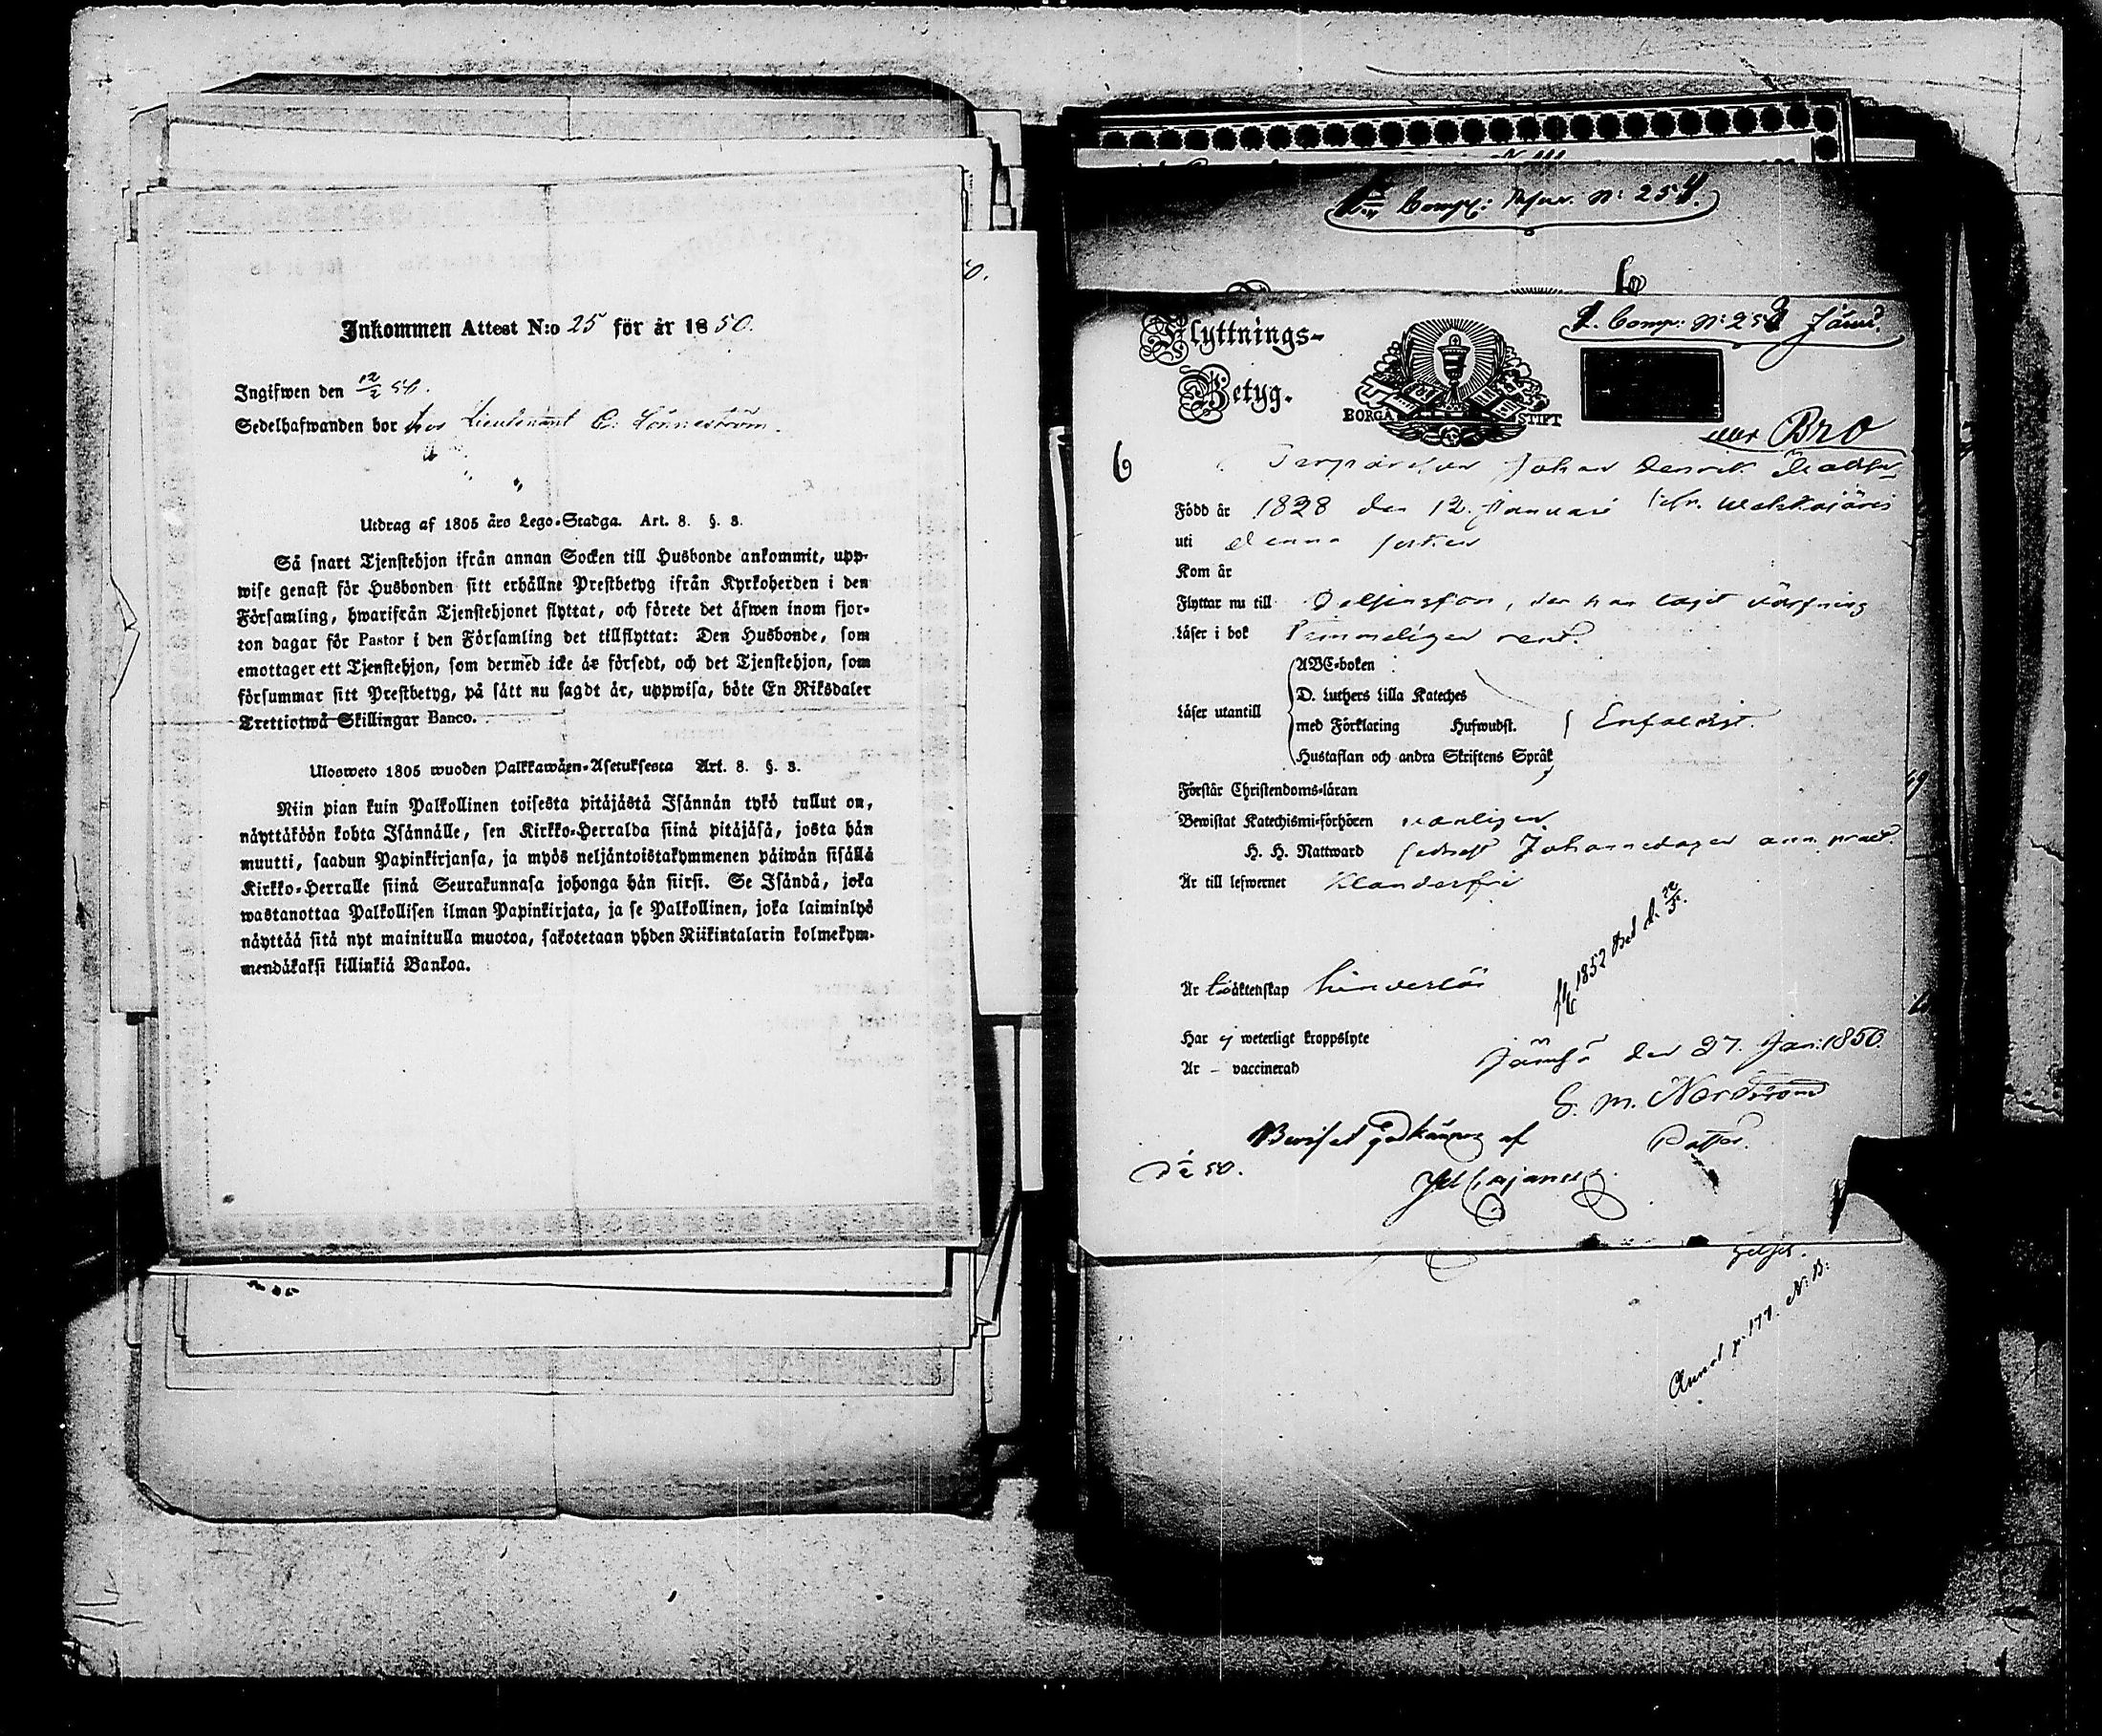 Inkommen Attest N:o 25 för år 1850.
Ingifwen den 12/2 50.
Sedelhafwanden bor hos Lieutenant C. Lönneström.
Utdrag af 1805 års Lego-Stadga. Art. 8. §. 3.
Så snart Tjenstehjon ifrån annan Socken till Husbonde ankommit, upp-
wise genast för Husbonden sitt erhållne Prestbetyg ifrån Kyrkoherden i den
Församling, hwarifrån Tjenstehjonet flyttat, och förete det äfwen inom fjor-
ton dagar för Pastor i den Församling det tillflyttat: Den Husbonde, som
emottager ett Tjenstehjon, som dermed icke är försedt, och det Tjenstehjon, som
försummar sitt Prestbetyg, på sätt nu sagdt är, uppwisa, böte En Riksdaler
Trettiotwå Skillingar Banco.
Ulosweto 1805 wuoden Palkkawäen-Asetuksesta Art. 8. §. 3.
Niin pian kuin Palkollinen toisesta pitäjästä Isännän tykö tullut on,
näyttäköön kohta Isännälle, sen Kirkko-Herralda siinä pitäjäsä, josta hän
muutti, saadun Papinkirjansa, ja myös neljäntoistakymmenen päiwän sisällä
Kirkko-Herralle siinä Seurakunnasa johonga hän siirsi. Se Isändä, joka
wastanottaa Palkollisen ilman Papinkirjata, ja se Palkollinen, joka laiminlyö
näyttää sitä nyt mainitulla muotoa, sakotetaan yhden Riikintalarin kolmekym-
mendäkaksi killinkiä Bankoa.
Comp: N: 254.
6
Comp: N: 254
Flyttnings-
Betyg.
BORGÅ STIFT
Bro
6
Johan Henrik
Född år 1828 den 12 Januari
uti denna socken
Kom år
Flyttar nu till Helsingfors, der han tagit värfning
Läser i bok Temmeligen rent.
Läser utantill
ABC-boken
D. Luthers Lilla Kateches
med Förklaring Hufwudst.
Hustaflan och andra Skriftens Språk
Enfaldigt.
Förstår Christendoms-läran
Bewistat Katechismi-förhören vanligen
H. H. Nattward sednast Johannedagen
Är till lefwernet Klanderfri
Är till äktenskap hinderlös
1852
Har ej weterligt kroppslyte
Är – vaccinerad
Jämsä den 27. Jan: 1850.
G. M. Nordström
Pastor.
Beviset godkännes af
Cajander
50.
p. 177.